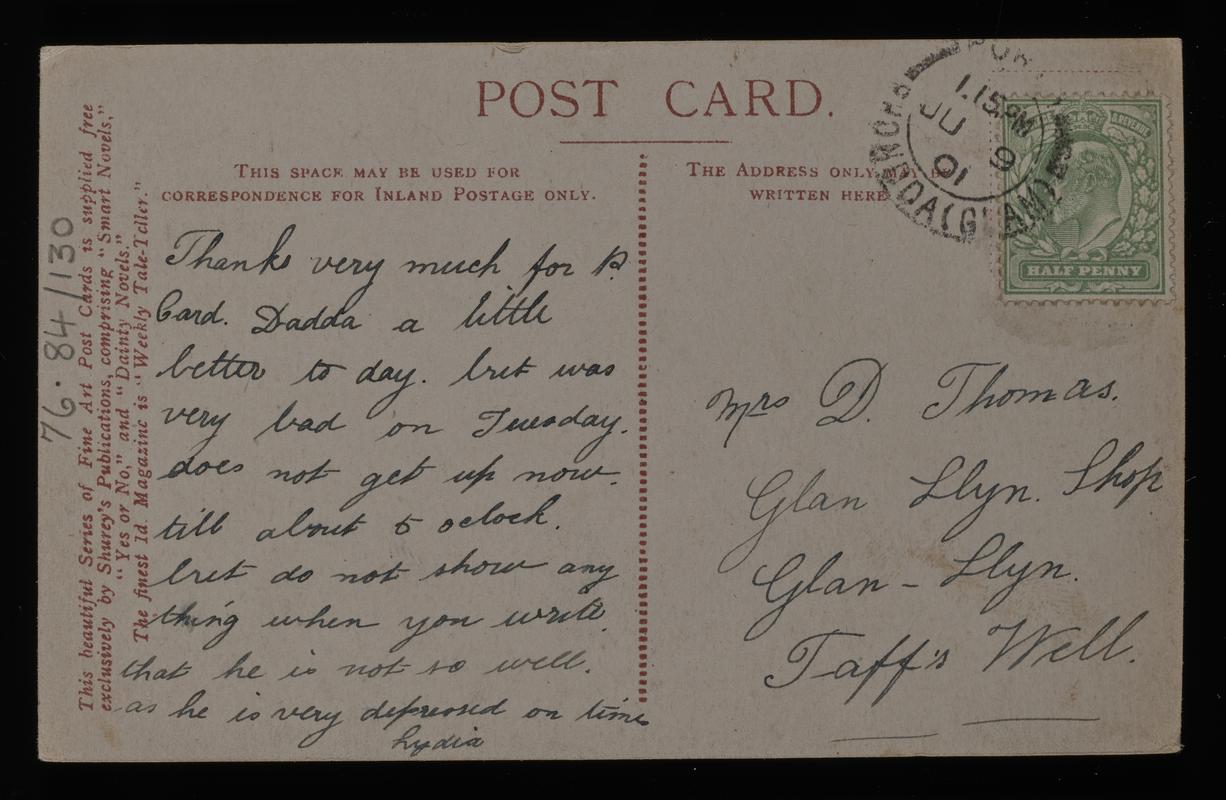 POST CARD.
THIS SPACE MAY BE USED FOR
CORRESPONDENCE FOR INLAND POSTAGE ONLY.
THE ADDRESS ONLY MAY BE
WRITTEN HERE
Thanks very much for P.
Card. Dadda a little
better to day. but was
very bad on Tuesday.
does not get up now.
till about 5 oclock.
but do not show any
thing when you write.
that he is not so well.
as he is very depressed on times
Lydia
Mrs D. Thomas.
Glan Llyn. Shop
Glan-Llyn.
Taff's Well.
1.15 PM
JU 9
01
(GLAM)
HALF PENNY
This beautiful Series of Fine Art Post Cards is supplied free
exclusively by Shurey's Publications, comprising "Smart Novels,"
"Yes or No," and "Dainty Novels."
The finest 1d. Magazine is "Weekly Tale-Teller."
76.84/130